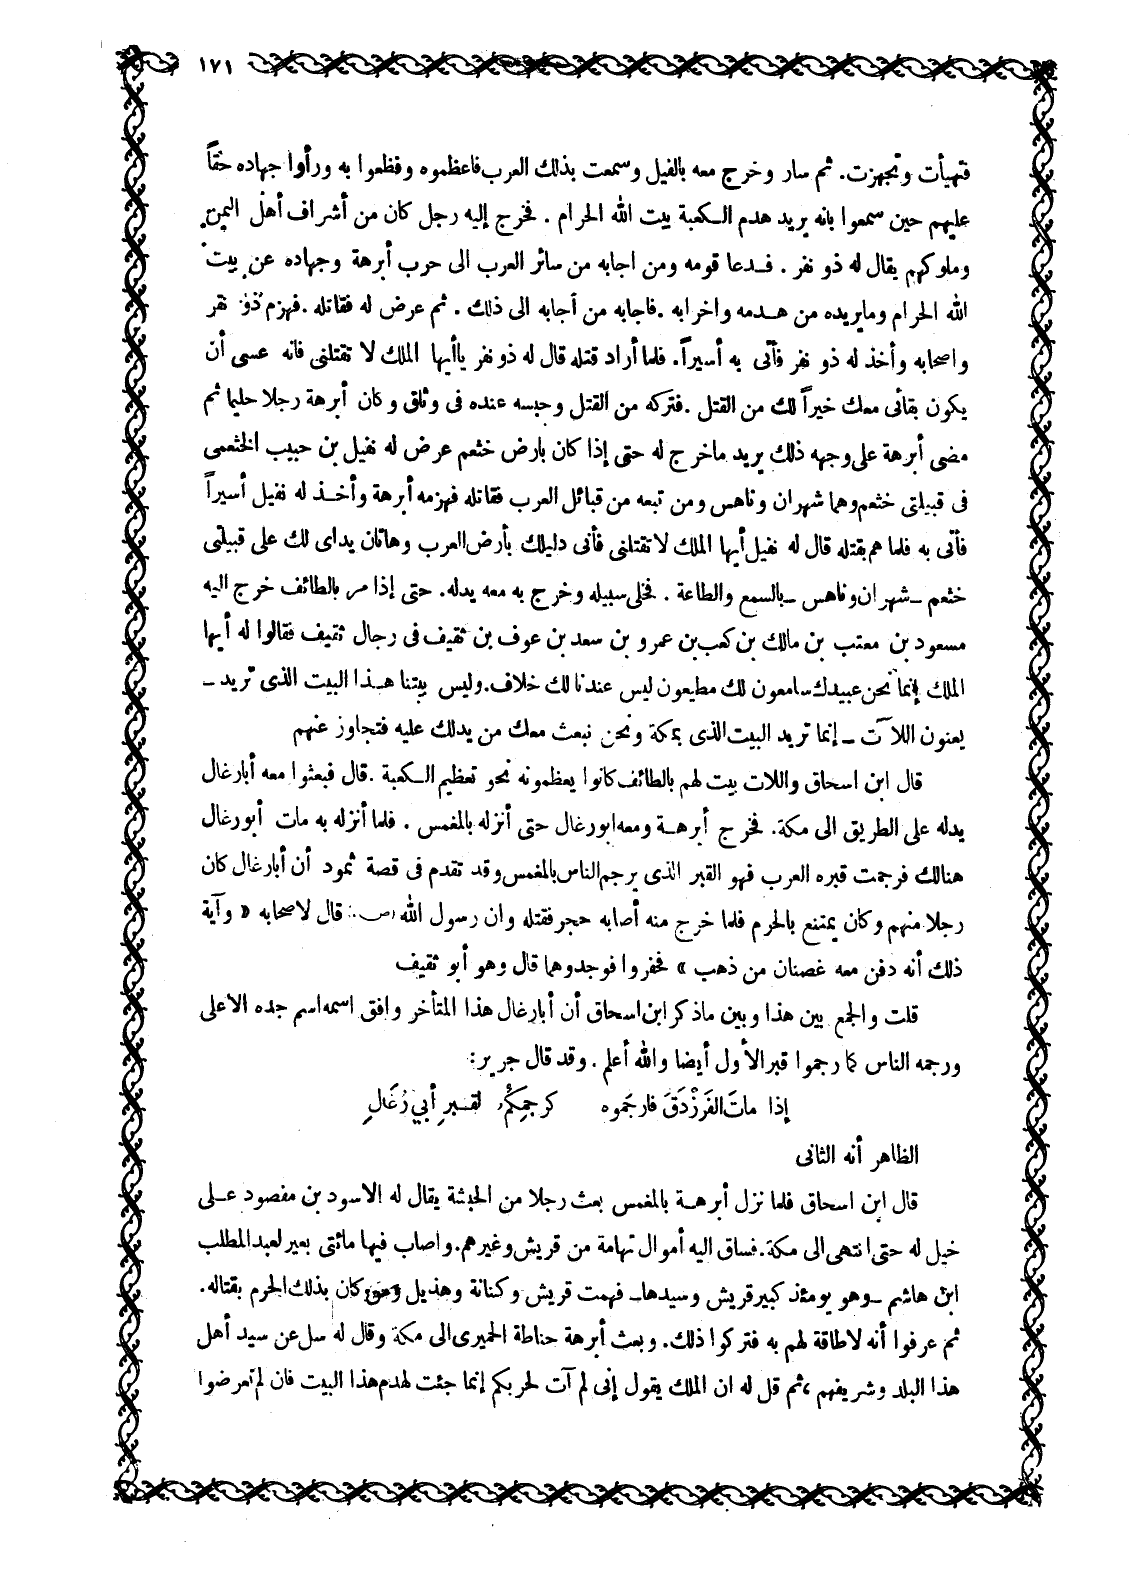 ١٧١
فتهيأت وتجهزت. ثم سار وخرج معه بالفيل وسمعت بذلك العرب فاعظموه وفظعوا به ورأوا جهاده حقاً
عليهم حين سمعوا بانه يريد هدم الكعبة بيت الله الحرام . فخرج إليه رجل كان من أشراف أهل اليمن
وملوكهم يقال له ذو نفر . فدعا قومه ومن اجابه من سائر العرب الى حرب أبرهة وجهاده عن بيت
الله الحرام ومايريده من هدمه واخرابه .فاجابه من أجابه الى ذلك . ثم عرض له فقاتله .فهزم ذو نفر
واصحابه وأخذ له ذو نفر فأتى به أسيراً. فلما أراد قتله قال له ذو نفر ياأيها الملك لا تقتلنى فانه عسى أن
يكون بقائى معك خيراً لك من القتل .فتركه من القتل وحبسه عنده فى وثاق وكان أبرهة رجلا حليما ثم
مضى أبرهة على وجهه ذلك يريد ماخرج له حتى إذا كان بارض خثعم عرض له نفيل بن حبيب الخثعمى
فى قبيلتى خثعم وهما شهران وناهس ومن تبعه من قبائل العرب فقاتله فهزمه أبرهة وأخذ له نفيل أسيراً
فأتى به فلما هم بقتله قال له نفيل أيها الملك لا تقتلنى فأنى دليلك بأرض العرب وهاتان يداى لك على قبيلتى
خثعم ــ شهران وناهس ــ بالسمع والطاعة . فخلى سبيله وخرج به معه يدله. حتى إذا مر بالطائف خرج اليه
مسعود بن معتب بن مالك بن كعب بن عمرو بن سعد بن عوف بن ثقيف فى رجال ثقيف فقالوا له أيها
الملك إنما نحن عبيدك سامعون لك مطيعون ليس عندنا لك خلاف.وليس بيتنا هذا البيت الذى تريد ــ
يعنون اللات ــ إنما تريد البيت الذى بمكة ونحن نبعث معك من يدلك عليه فتجاوز عنهم
قال ابن اسحاق واللات بيت لهم بالطائف كانوا يعظمونه نحو تعظيم الكعبة .قال فبعثوا معه أبارغال
يدله على الطريق الى مكة. فخرج أبرهة ومعه ابورغال حتى أنزله بالمغمس . فلما أنزله به مات أبورغال
هنالك فرجمت قبره العرب فهو القبر الذى يرجم الناس بالمغمس وقد تقدم فى قصة ثمود أن أبارغال كان
رجلا منهم وكان يمتنع بالحرم فلما خرج منه أصابه حجر فقتله وان رسول الله (ص) قال لاصحابه « وآية
ذلك أنه دفن معه غصنان من ذهب » فحفروا فوجدوهما قال وهو أبو ثقيف
قلت والجمع بين هذا وبين ماذكر ابن اسحاق أن أبارغال هذا المتأخر وافق اسمه اسم جده الاعلى
ورجمه الناس كما رجموا قبر الأول أيضا والله أعلم . وقد قال جرير:
إذا ماتَ الفَرَزْدَقَ فارجَموه كرجمِكمُ لقبرِ أبي رُغَالِ
الظاهر أنه الثانى
قال ابن اسحاق فلما نزل أبرهة بالمغمس بعث رجلا من الحبشة يقال له الاسود بن مفصود على
خيل له حتى انتهى الى مكة.فساق اليه أموال تهامة من قريش وغيرهم.واصاب فيها مائتى بعير لعبد المطلب
ابن هاشم ــ وهو يومئذ كبير قريش وسيدها ــ فهمت قريش وكنانة وهذيل ومن كان بذلك الحرم بقتاله.
ثم عرفوا أنه لاطاقة لهم به فتركوا ذلك. وبعث أبرهة حناطة الحميرى الى مكة وقال له سل عن سيد أهل
هذا البلد وشريفهم ، ثم قل له ان الملك يقول إنى لم آت لحربكم إنما جئت لهدم هذا البيت فان لم تعرضوا